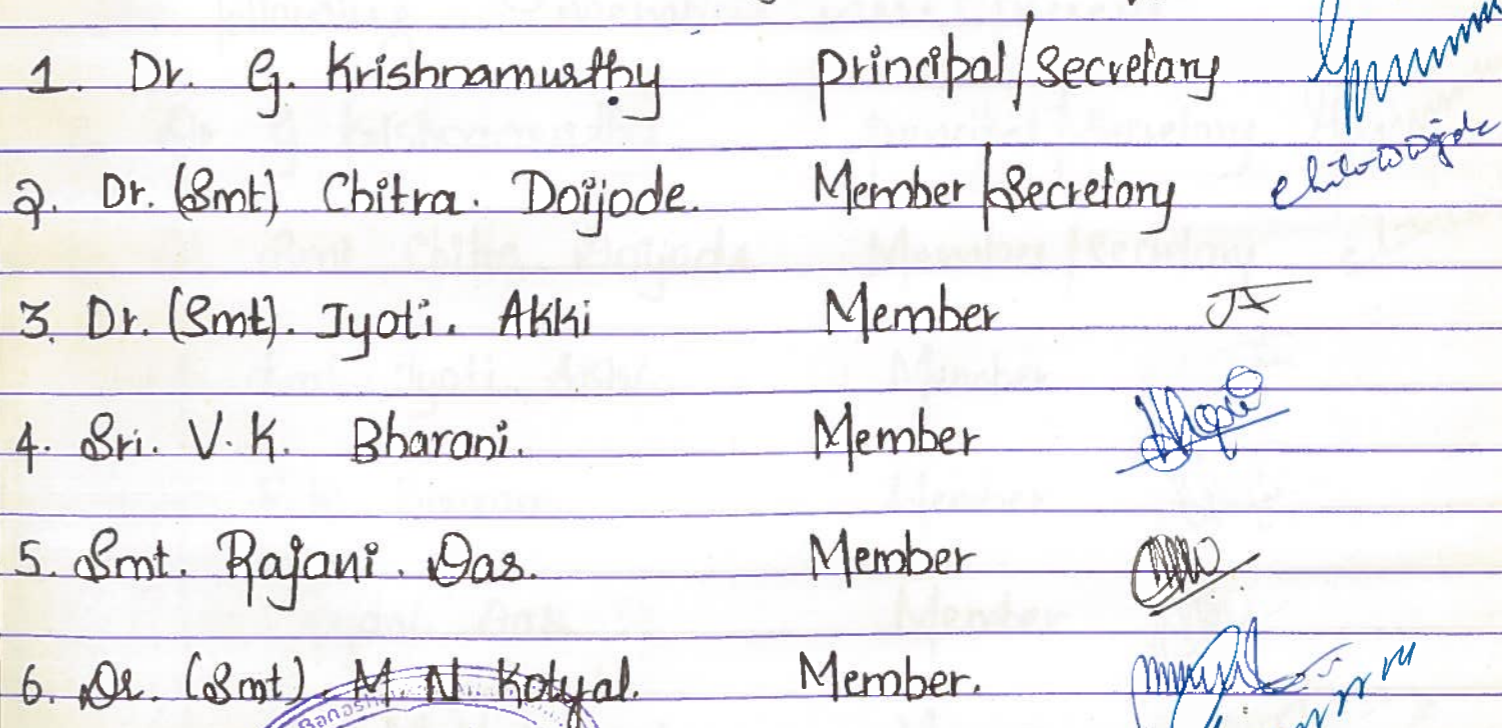 1. Dr. G. Krishnamurthy Principal/Secretary
2. Dr. (Smt) Chitra. Doijode. Member/Secretory
3. Dr. (Smt). Jyoti. Akki Member JA
4. Sri. V. K. Bharani. Member
5. Smt. Rajani. Das. Member
6. Dr. (Smt). M N Kotyal. Member.